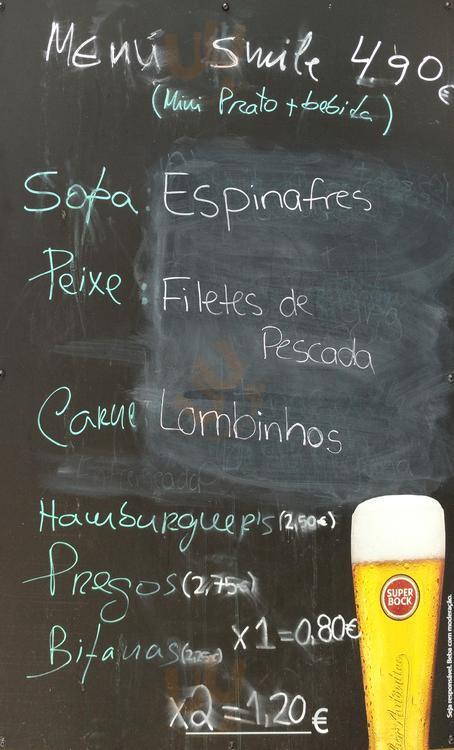 Menú Smile 4.90€
(Mini Prato + bebida)
Sopa: Espinafres
Peixe: Filetes de
Pescada
Carne Lombinhos
Hamburgueris (2,50€)
Pregos (2,75€)
Bifanas (2,25€) x1=0,80€
x2=1,20€
SUPER BOCK
Seja responsável. Beba com moderação.